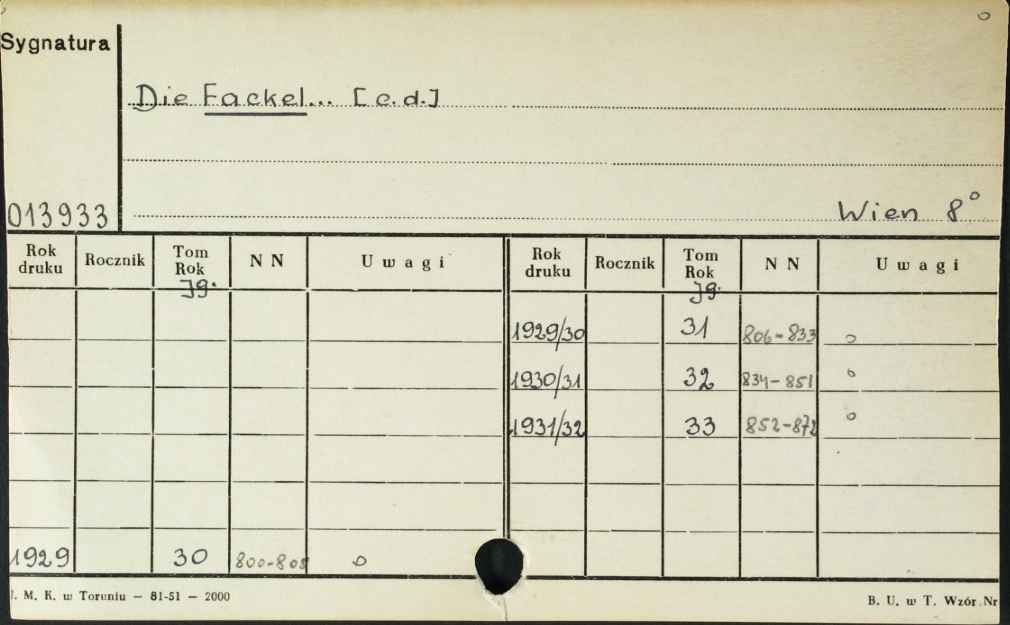 Sygnatura
Die Fackel... [c.d.]
013933
Wien 8°
Rok druku Rocznik Tom Rok NN Uwagi Rok druku Rocznik Tom Rok NN Uwagi
Jg. Jg.
1929/30 31 806-833 o
1930/31 32 834-851 o
1931/32 33 852-872 o
1929 30 800-805 o
. M. K. w Toruniu — 81-51 — 2000
B. U. w T. Wzór Nr